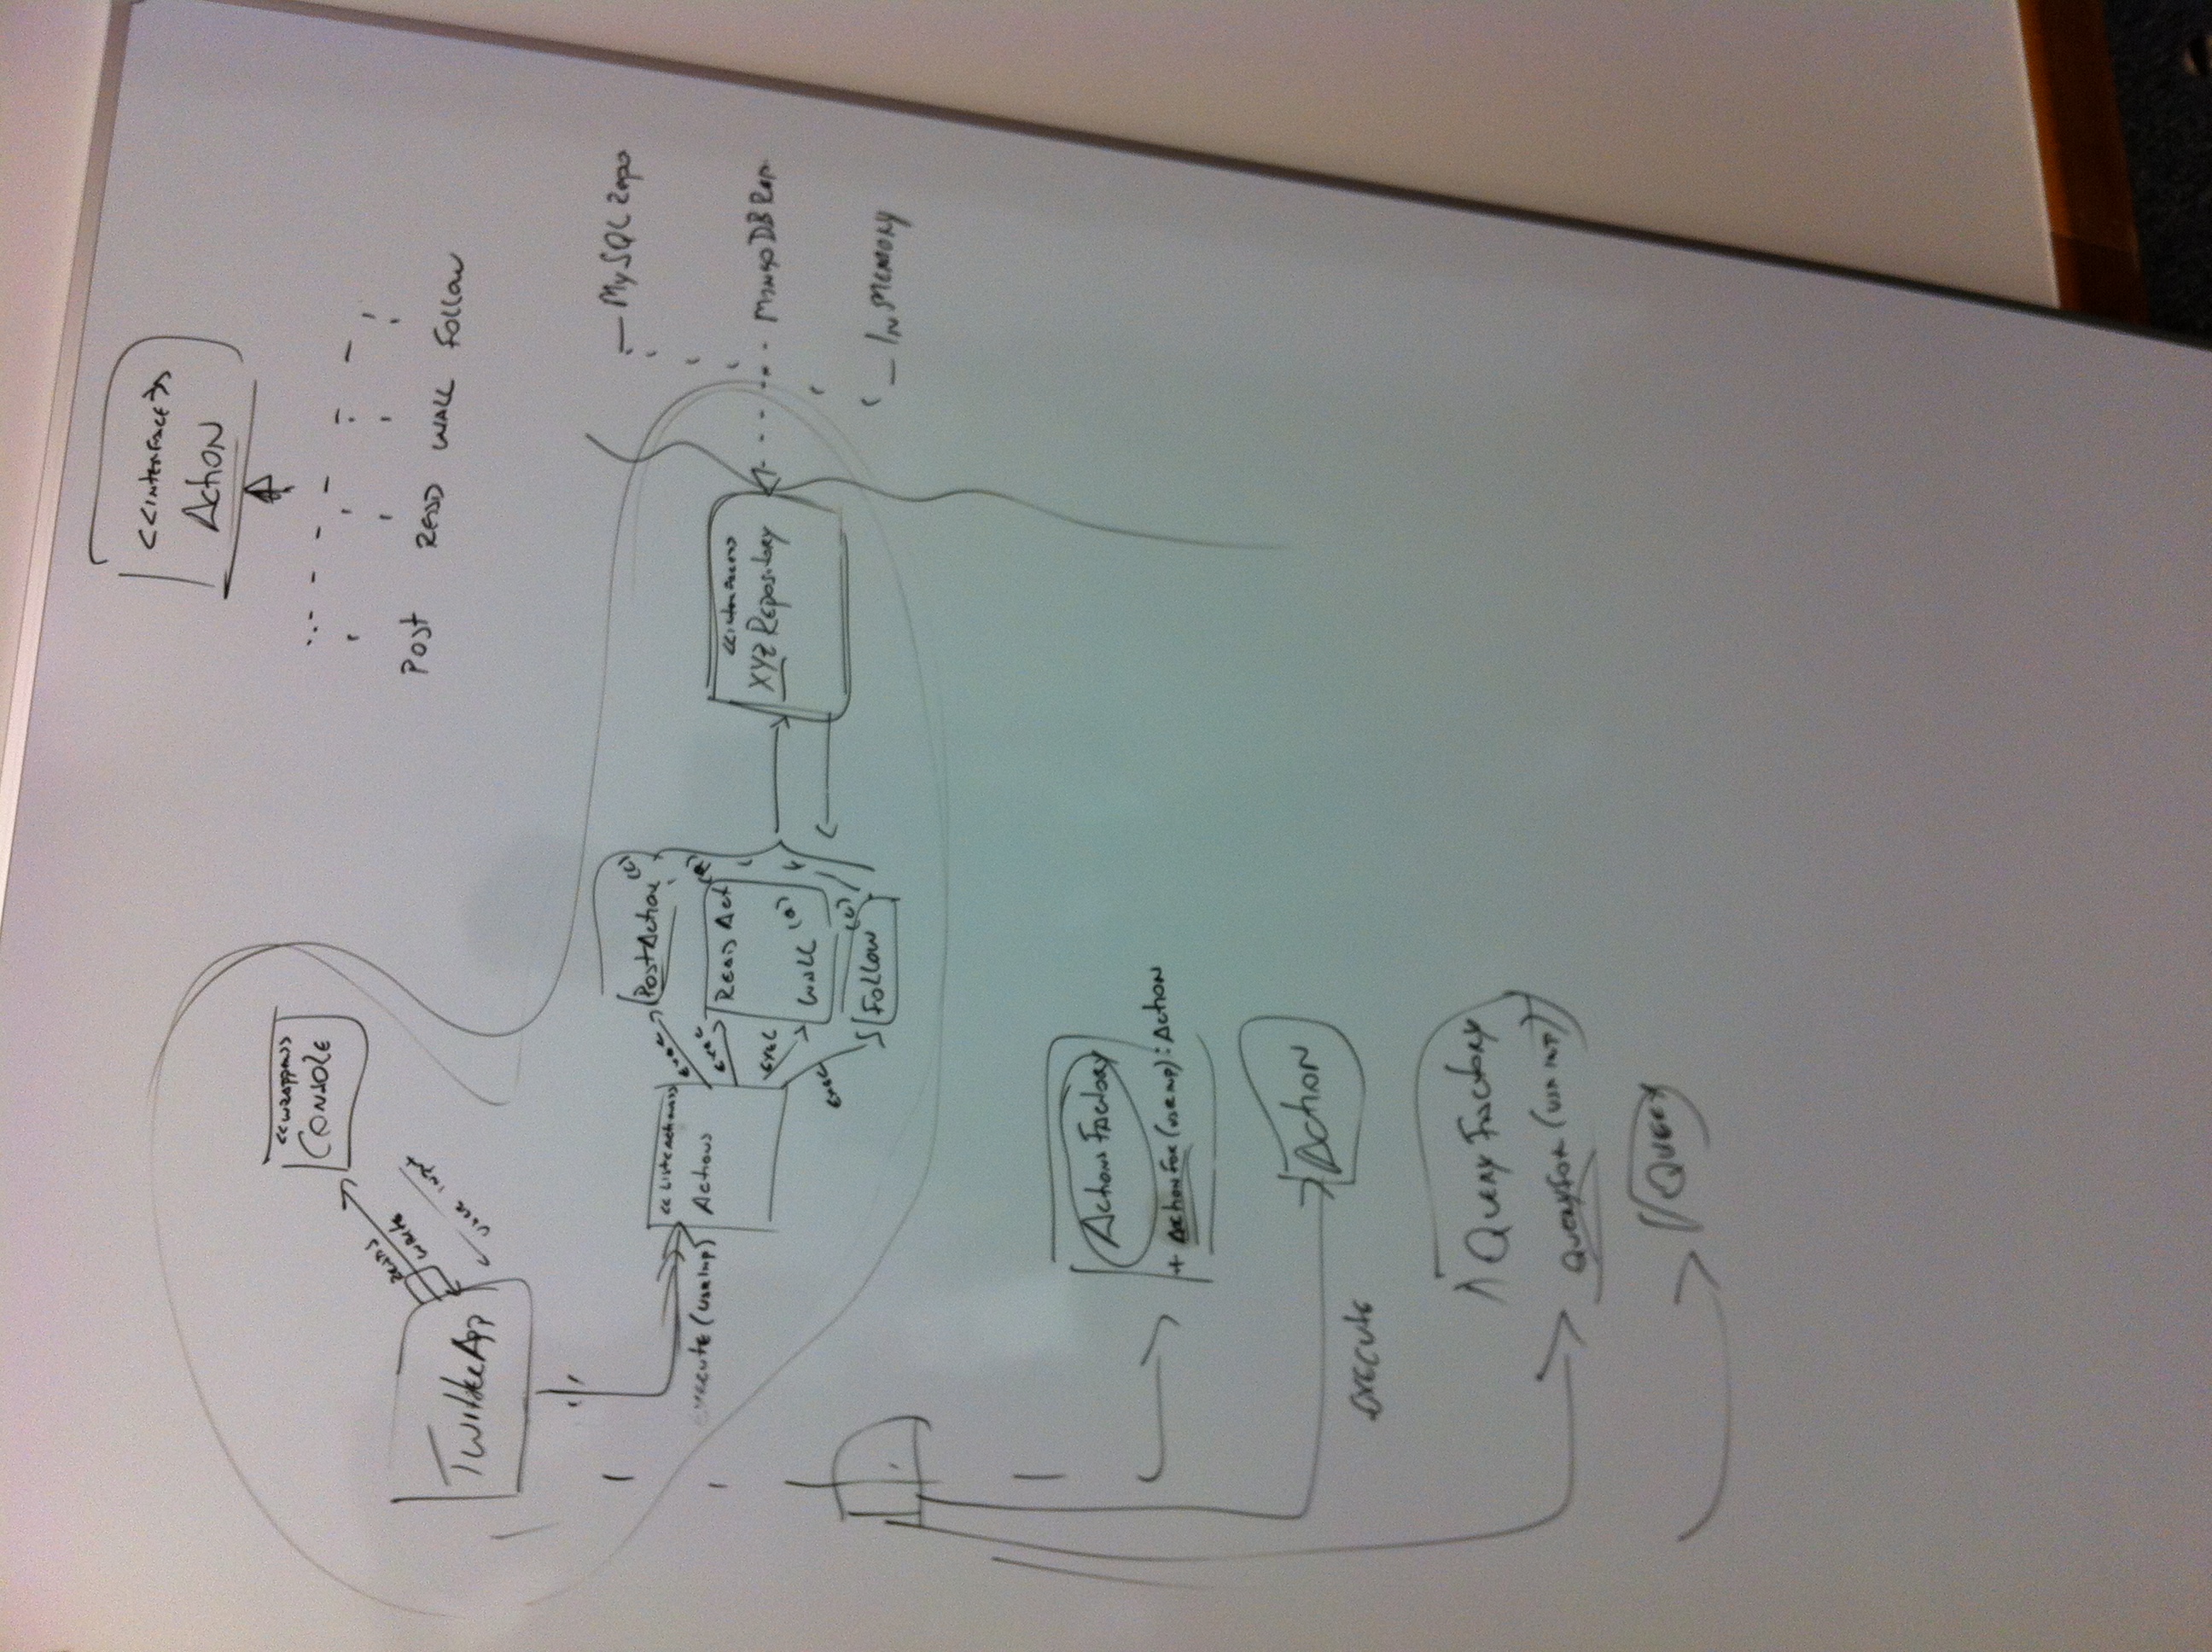 <<INTERFACE>>
Action
Post
READ
WALL
Follow
<<wrapper>>
CONSOLE
READS
WRITE
USER INPUT
TwitterApp
execute(USR INP)
Actions
exec
exec
exec
exec
PostAction (C)
READ Act (Q)
WALL (Q)
Follow (C)
<<interface>>
XYZ Repository
MySQL Repo
MongoDB Rep
In MEMORY
Actions Factory
+ ActionFor (USR INP): Action
Action
EXECUTE
Query Factory
QueryFor (USR INP)
Query